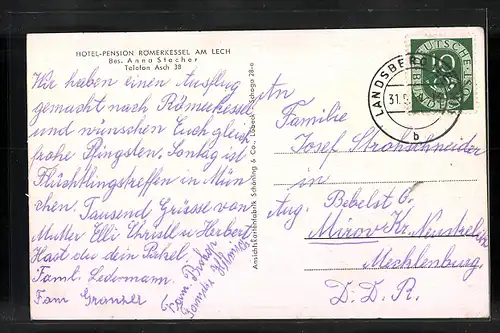 HOTEL-PENSION RÖMERKESSEL AM LECH
Bes. Anna Stacher
Telefon Asch 38
Wir haben einen Ausflug
gemacht nach Römerkessel
und wünschen Euch gleich
frohe Pfingsten. Sontag ist
Flüchtlingstreffen in Mün-
chen. Tausend Grüsse von
Mutter Elli Christl u Herbert
Hast du dein Paket
Faml. Ledermann.
Fam
Fam
Familie
Ansichtskartenfabrik Schöning & Co., Lübeck
LANDSBERG
31.5
b
DEUTSCHE POST
10
An
Familie
Josef Strohschneider
in
Aug. Bebelst 6.
Mirow Kr. Neustrelitz
Mecklenburg.
D. D. R.